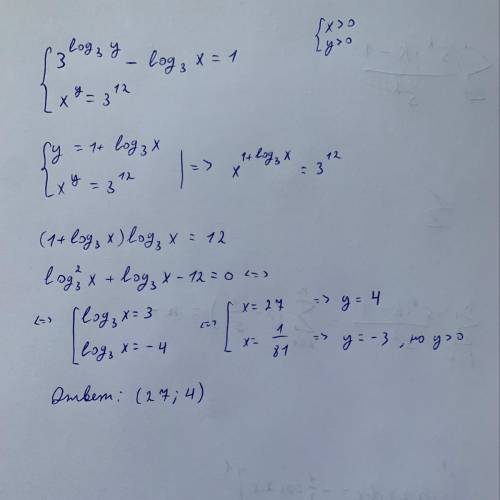 { 3^{log_3 y} - log_3 x = 1
{ x^y = 3^{12}
{ x>0
{ y>0
{ y = 1 + log_3 x
{ x^y = 3^{12} | => x^{1+log_3 x} = 3^{12}
(1+log_3 x) log_3 x = 12
log_3^2 x + log_3 x - 12 = 0 <=>
<=> [ log_3 x = 3
[ log_3 x = -4
<=> [ x = 27 => y = 4
[ x = 1/81 => y = -3, но y>0
Ответ: (27; 4)